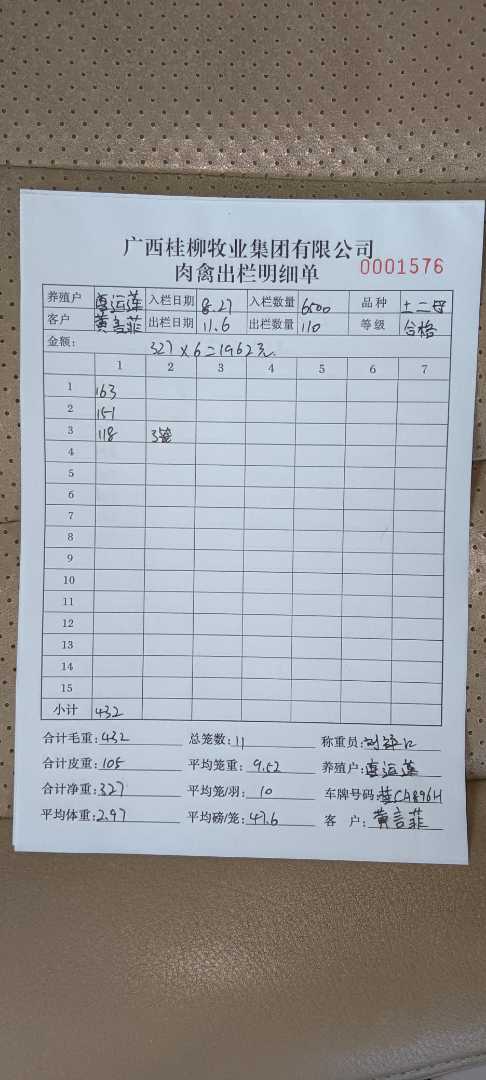 广西桂柳牧业集团有限公司
肉禽出栏明细单 0001576
养殖户 覃运莲 入栏日期 8.27 入栏数量 6500 品种 土二号
客户 黄言菲 出栏日期 11.6 出栏数量 110 等级 合格
金额: 327×6=1962元
1 2 3 4 5 6 7
1 163
2 151
3 118 3笼
4
5
6
7
8
9
10
11
12
13
14
15
小计 432
合计毛重:432 总笼数:11 称重员:
合计皮重:105 平均笼重:9.52 养殖户:覃运莲
合计净重:327 平均笼/羽:10 车牌号码:
平均体重:2.97 平均磅/笼:47.6 客 户:黄言菲